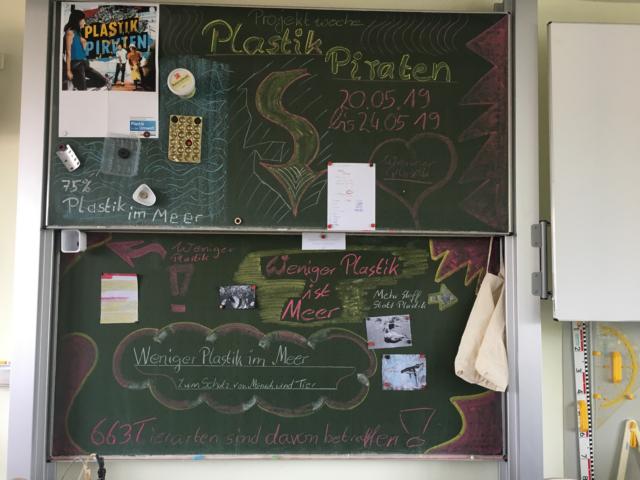 Projektwoche
Plastik
Piraten
20.05.19
bis 24.05.19
PLASTIK
PIRATEN
Weniger
Plastik
75%
Plastik im Meer
Weniger
Plastik
Weniger Plastik
ist
Meer
Mehr Stoff
Statt Plastik
Weniger Plastik im Meer
Zum Schutz von Mensch und Tier
663 Tierarten sind davon betroffen!